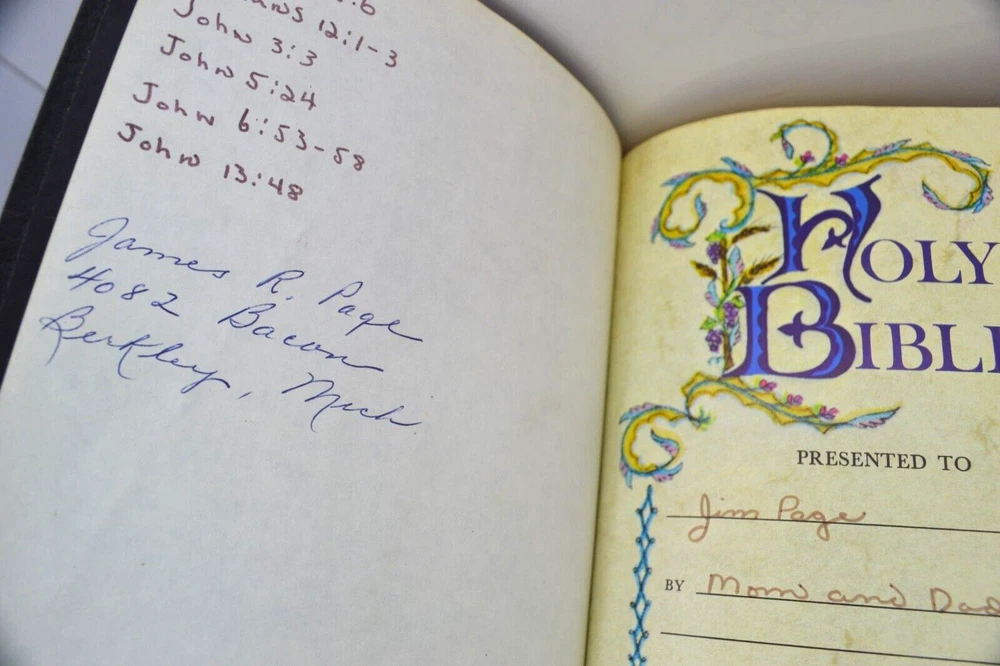 :6
12:1-3
John 3:3
John 5:24
John 6:53-58
John 13:48
James R. Page
4082 Bacon
Berkley, Mich
HOLY
BIBLE
PRESENTED TO
Jim Page
BY Mom and Dad